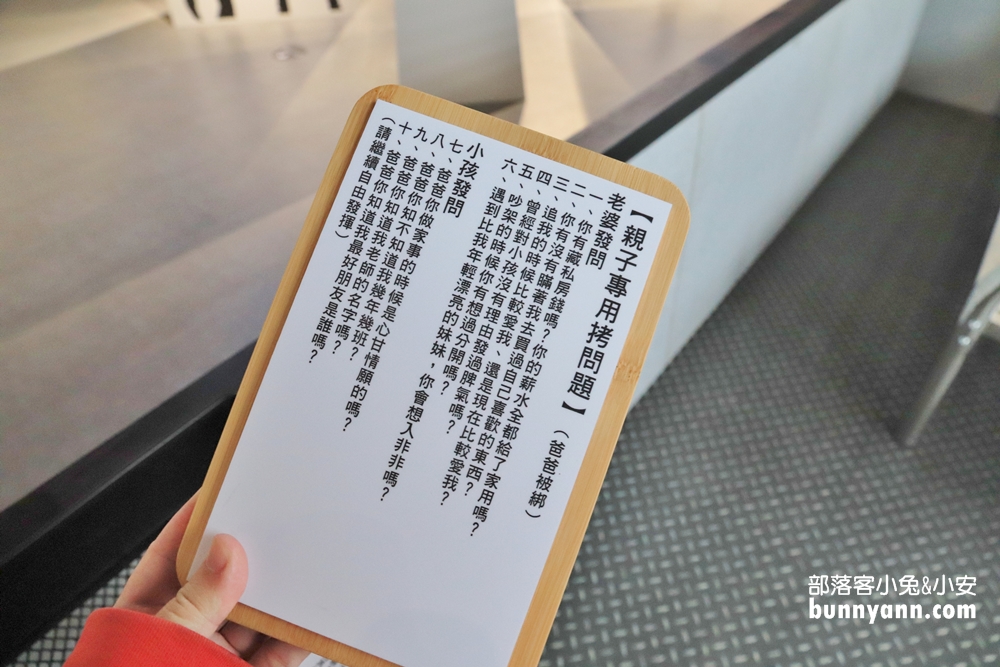 【親子專用拷問題】（爸爸被綁）
老婆發問
一、你有藏私房錢嗎？你的薪水全都給了家用嗎？
二、你有沒有瞞著我去買過自己喜歡的東西？
三、追我的時候比較愛我、還是現在比較愛我？
四、曾經對小孩沒有理由發過脾氣嗎？
五、吵架的時候你有想過分開嗎？
六、遇到比我年輕漂亮的妹妹，你會想入非非嗎？
小孩發問
七、爸爸你做家事的時候是心甘情願的嗎？
八、爸爸你知不知道我幾年幾班？
九、爸爸你知道我老師的名字嗎？
十、爸爸你知道我最好朋友是誰嗎？
（請繼續自由發揮）
部落客小兔&小安
bunnyann.com